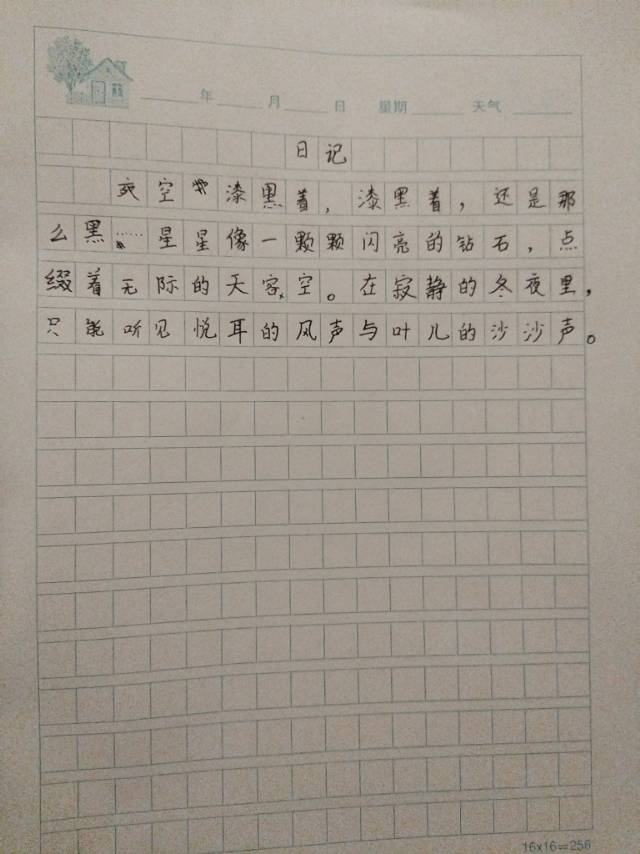 年 月 日 星期 天气
日记
空漆黑着，漆黑着，还是那
么黑……星星像一颗颗闪亮的钻石，点
缀着无际的天空。在寂静的冬夜里，
只能听见悦耳的风声与叶儿的沙沙声。
16x16=256